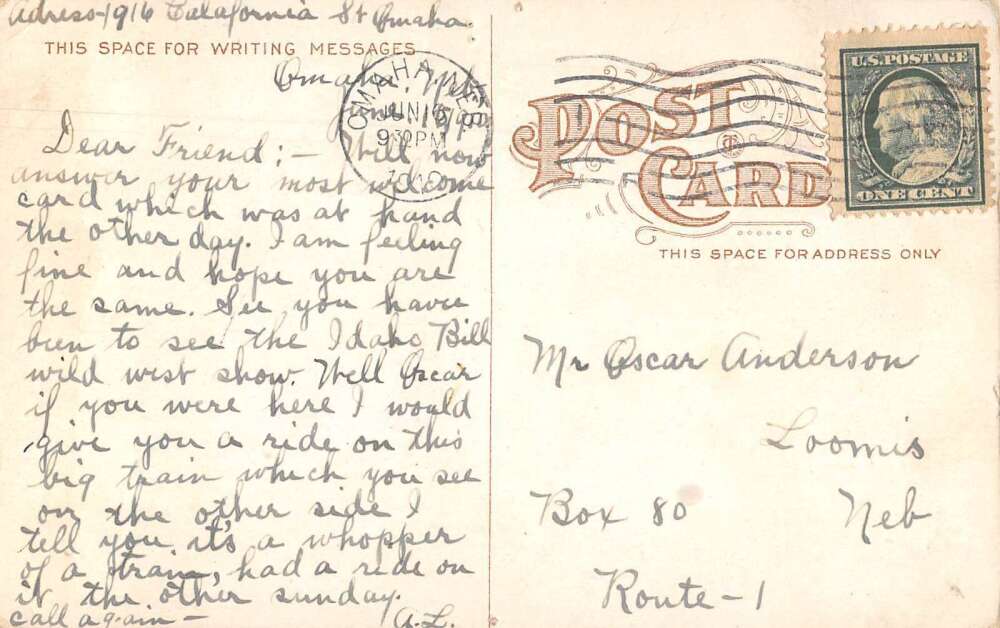 Adress-1916 California St Omaha.
THIS SPACE FOR WRITING MESSAGES
Omaha, Neb
OMAHA, NEB
JUN 16
9 30 PM
1910
Dear Friend:- Will now
answer your most welcome
card which was at hand
the other day. I am feeling
fine and hope you are
the same. See you have
been to see the Idaho Bill
wild west show. Well Oscar
if you were here I would
give you a ride on this
big train which you see
on the other side I
tell you it's a whopper
of a train, had a ride on
it the other sunday.
call again - A.L.
POST CARD
THIS SPACE FOR ADDRESS ONLY
U.S. POSTAGE
ONE CENT
Mr Oscar Anderson
Loomis
Box 80 Neb
Route-1